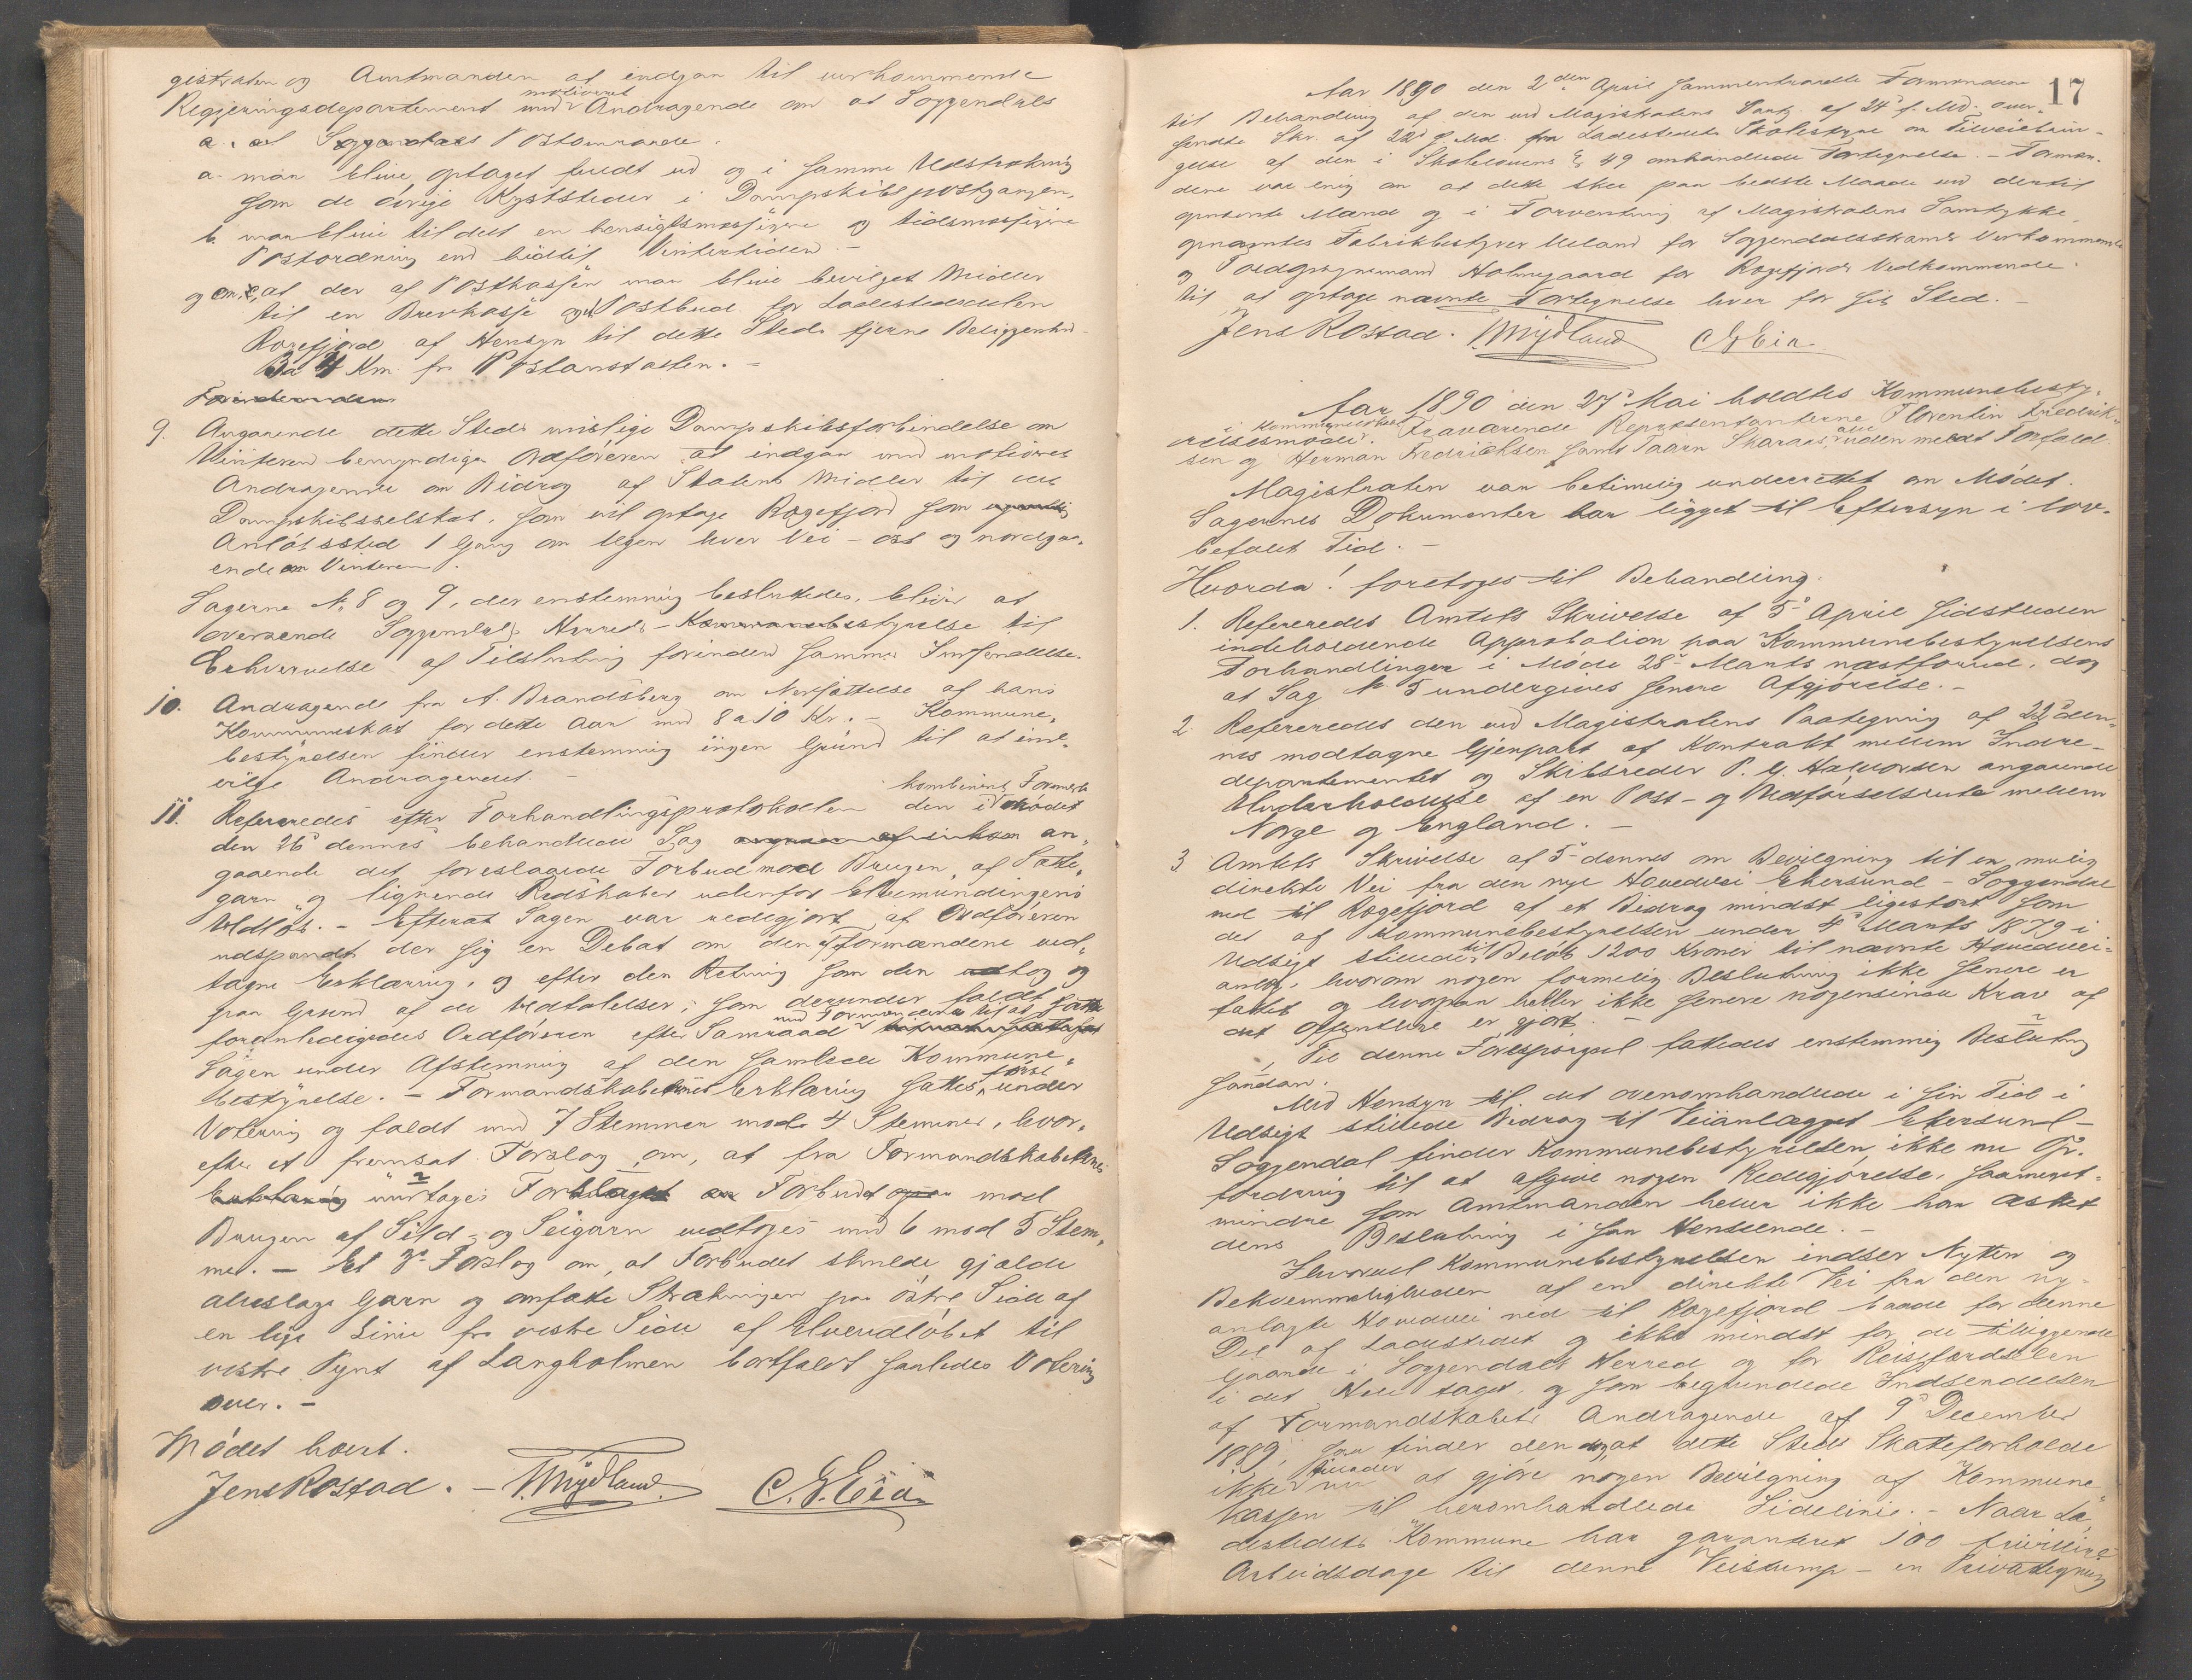 gistraten og Amtmanden at indgaa til vedkommende
Regjeringsdepartement med motiveret Andragende om at Soggendals
a. at Soggendals Postomraade.
a. maa blive optaget fuldt ud og i samme Udstrækning
som de øvrige Kyststeder i Dampskibspostgangen,
b. maa blive tildelt en hensigtsmæssigere og tidsmæssigere
Postordning end hidtil Vintertiden. -
og om c, at der af Postkassen maa blive bevilget Midler
til en Brevkasse og Postbud for Ladestedsdelen
Rægefjord af Hensyn til dette Steds fjerne Beliggenhed
3 a 4 Km. fra Postanstalten. -
9. Angaaende dette Steds uvislige Dampskibsforbindelse om
Vinteren bemyndiges Ordføreren at indgaa med motiveret
Andragende om Bidrag af Statens Midler til det
Dampskibsselskab, som vil optage Rægefjord som
Anløbssted 1 Gang om Ugen hver Vei - øst og nordgaa-
ende om Vinteren.
Sagerne No 8 og 9, der enstemmig besluttedes, blive at
oversende Soggendals Herreds-Kommunebestyrelse til
Erhvervelse af Tilslutning forinden samme Indsendelse.
10. Andragende fra A. Brandsberg om Nedsættelse af hans
Kommuneskat for dette Aar med 8 a 10 Kr. - Kommune-
bestyrelsen finder enstemmig ingen Grund til at ind-
vilge Andragendet. -
11. Refereredes efter Forhandlingsprotokollen den i kombineret Formands Mødet
den 26d dennes behandlede Sag an-
gaaende det foreslaaede Forbud mod Brugen af Sætte-
garn og lignende Redskaber udenfor Elvemundingens
Udløb. - Efterat Sagen var redegjort af Ordføreren
udspandt der sig en Debat om den af Formændene ved-
tagne Erklæring, og efter den Retning som den tog og
paa Grund af de Udtalelser, som derunder faldt
foranledigedes Ordføreren efter Samraad med Formændene til at sætte
Sagen under Afstemning af den samlede Kommune-
bestyrelse. - Formandskabets Erklæring sattes først under
Votering og faldt med 7 Stemmer mod 4 Stemmer, hvor-
efter et fremsat Forslag om, at fra Formandskabets
Erklæring undtages Forslaget om Forbudet mod
Brugen af Sild- og Seigarn vedtoges med 6 mod 5 Stem-
mer. - Et 3d Forslag om, at Forbudet skulde gjælde
alleslags Garn og omfatte Strækningen paa østre Side af
en lige Linie fra vestre Side af Elveudløbet til
vestre Pynt af Langholmen bortfaldt saaledes Votering
over. -
Mødet hævet.
Jens Rostad. - T. Mydland. C. G. Eia
17
Aar 1890 den 2den April sammentraadte Formændene
til Behandling af den ved Magistratens Paateg. af 24d f. Md. over-
sendte Skr. af 22d f. Md. fra Ladestedets Skolestyre om Tilveiebrin-
gelse af den i Skolelovens § 49 omhandlede Fortegnelse. - Formæn-
dene var enig om at dette sker paa bedste Maade ved dertil
opnævnte Mænd og i Forventning af Magistratens Samtykke
opnævntes Fabrikbestyrer Ueland for Soggendalsstrands Vedkommende
og Toldopsynsmand Holmegaard for Rægefjords Vedkommende
til at optage nævnte Fortegnelse hver for sit Sted. -
Jens Rostad. T. Mydland C G Eia
Aar 1890 den 27d Mai holdtes Kommunebesty-
relsesmøde i Kommunelokalet. Fraværende Repræsentanterne Florentin Fredrik-
sen og Herman Fredrichsen samt Taarn Skaraas, alle uden meldt Forfald.
Magistraten var betimelig underrettet om Mødet.
Sagernes Dokumenter har ligget til Eftersyn i lov-
befalet Tid. -
Hvorda! foretoges til Behandling.
1. Refereredes Amtets Skrivelse af 5d April sidstleden
indeholdende Approbation paa Kommunebestyrelsens
Forhandlinger i Møde 28d Marts næstforud, dog
at Sag No 5 undergives senere Afgjørelse. -
2. Refereredes den ved Magistratens Paategning af 22d den-
nes modtagne Gjenpart af Kontrakt mellem Indre-
departementet og Skibsreder P. G. Halvorsen angaaende
Underholdelse af en Post- og Udførselsrute mellem
Norge og England. -
3 Amtets Skrivelse af 5d dennes om Bevilgning til en mulig
direkte Vei fra den nye Hovedvei Ekersund - Soggendal
ned til Rægefjord af et Bidrag mindst ligestort som
det af Kommunebestyrelsen under 4d Marts 1879 i
Udsigt stillede til Beløb 1200 Kroner til nævnte Hovedvei-
anlæg, hvorom nogen formelig Beslutning ikke senere er
fattet og hvorpaa heller ikke senere nogensinde Krav af
det Offentlige er gjort. -
Til denne Forespørgsel fattedes enstemmig Beslutning
saadan.
Med Hensyn til det ovenomhandlede i sin Tid i
Udsigt stillede Bidrag til Veianlægget Ekersund -
Soggendal finder Kommunebestyrelsen ikke nu Op-
fordring til at afgive nogen Redegjørelse, saameget-
mindre som Amtmanden heller ikke har æsket
dens Beslutning i saa Henseende. -
Ihvorvel Kommunebestyrelsen indser Nytten og
Bekvemmeligheden af en direkte Vei fra den ny-
anlagte Hovedvei ned til Rægefjord baade for denne
Del af Ladestedet og ikke mindst for de tilliggende
Gaarde i Soggendals Herred og for Reisefærdselen
i det Hele taget, og som begrundede Indsendelsen
af Formandskabets Andragende af 9d December
1889, saa finder den dog, at dette Steds Skatteforholde
ikke tillader nu at gjøre nogen Bevilgning af Kommune-
kassen til heromhandlede Sidelinie. - Naar La-
destedets Kommune har garanteret 100 frivillige
Arbeidsdage til denne Veistump - en Privattegning